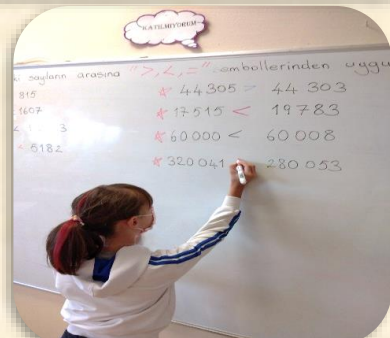 KATILMIYORUM
ki sayıların arasına ">,<,=" sembollerinden uygu
815
1607
3
5182
* 44 305 > 44 303
* 17 515 < 19 783
* 60 000 < 60 008
* 320 041 280 053